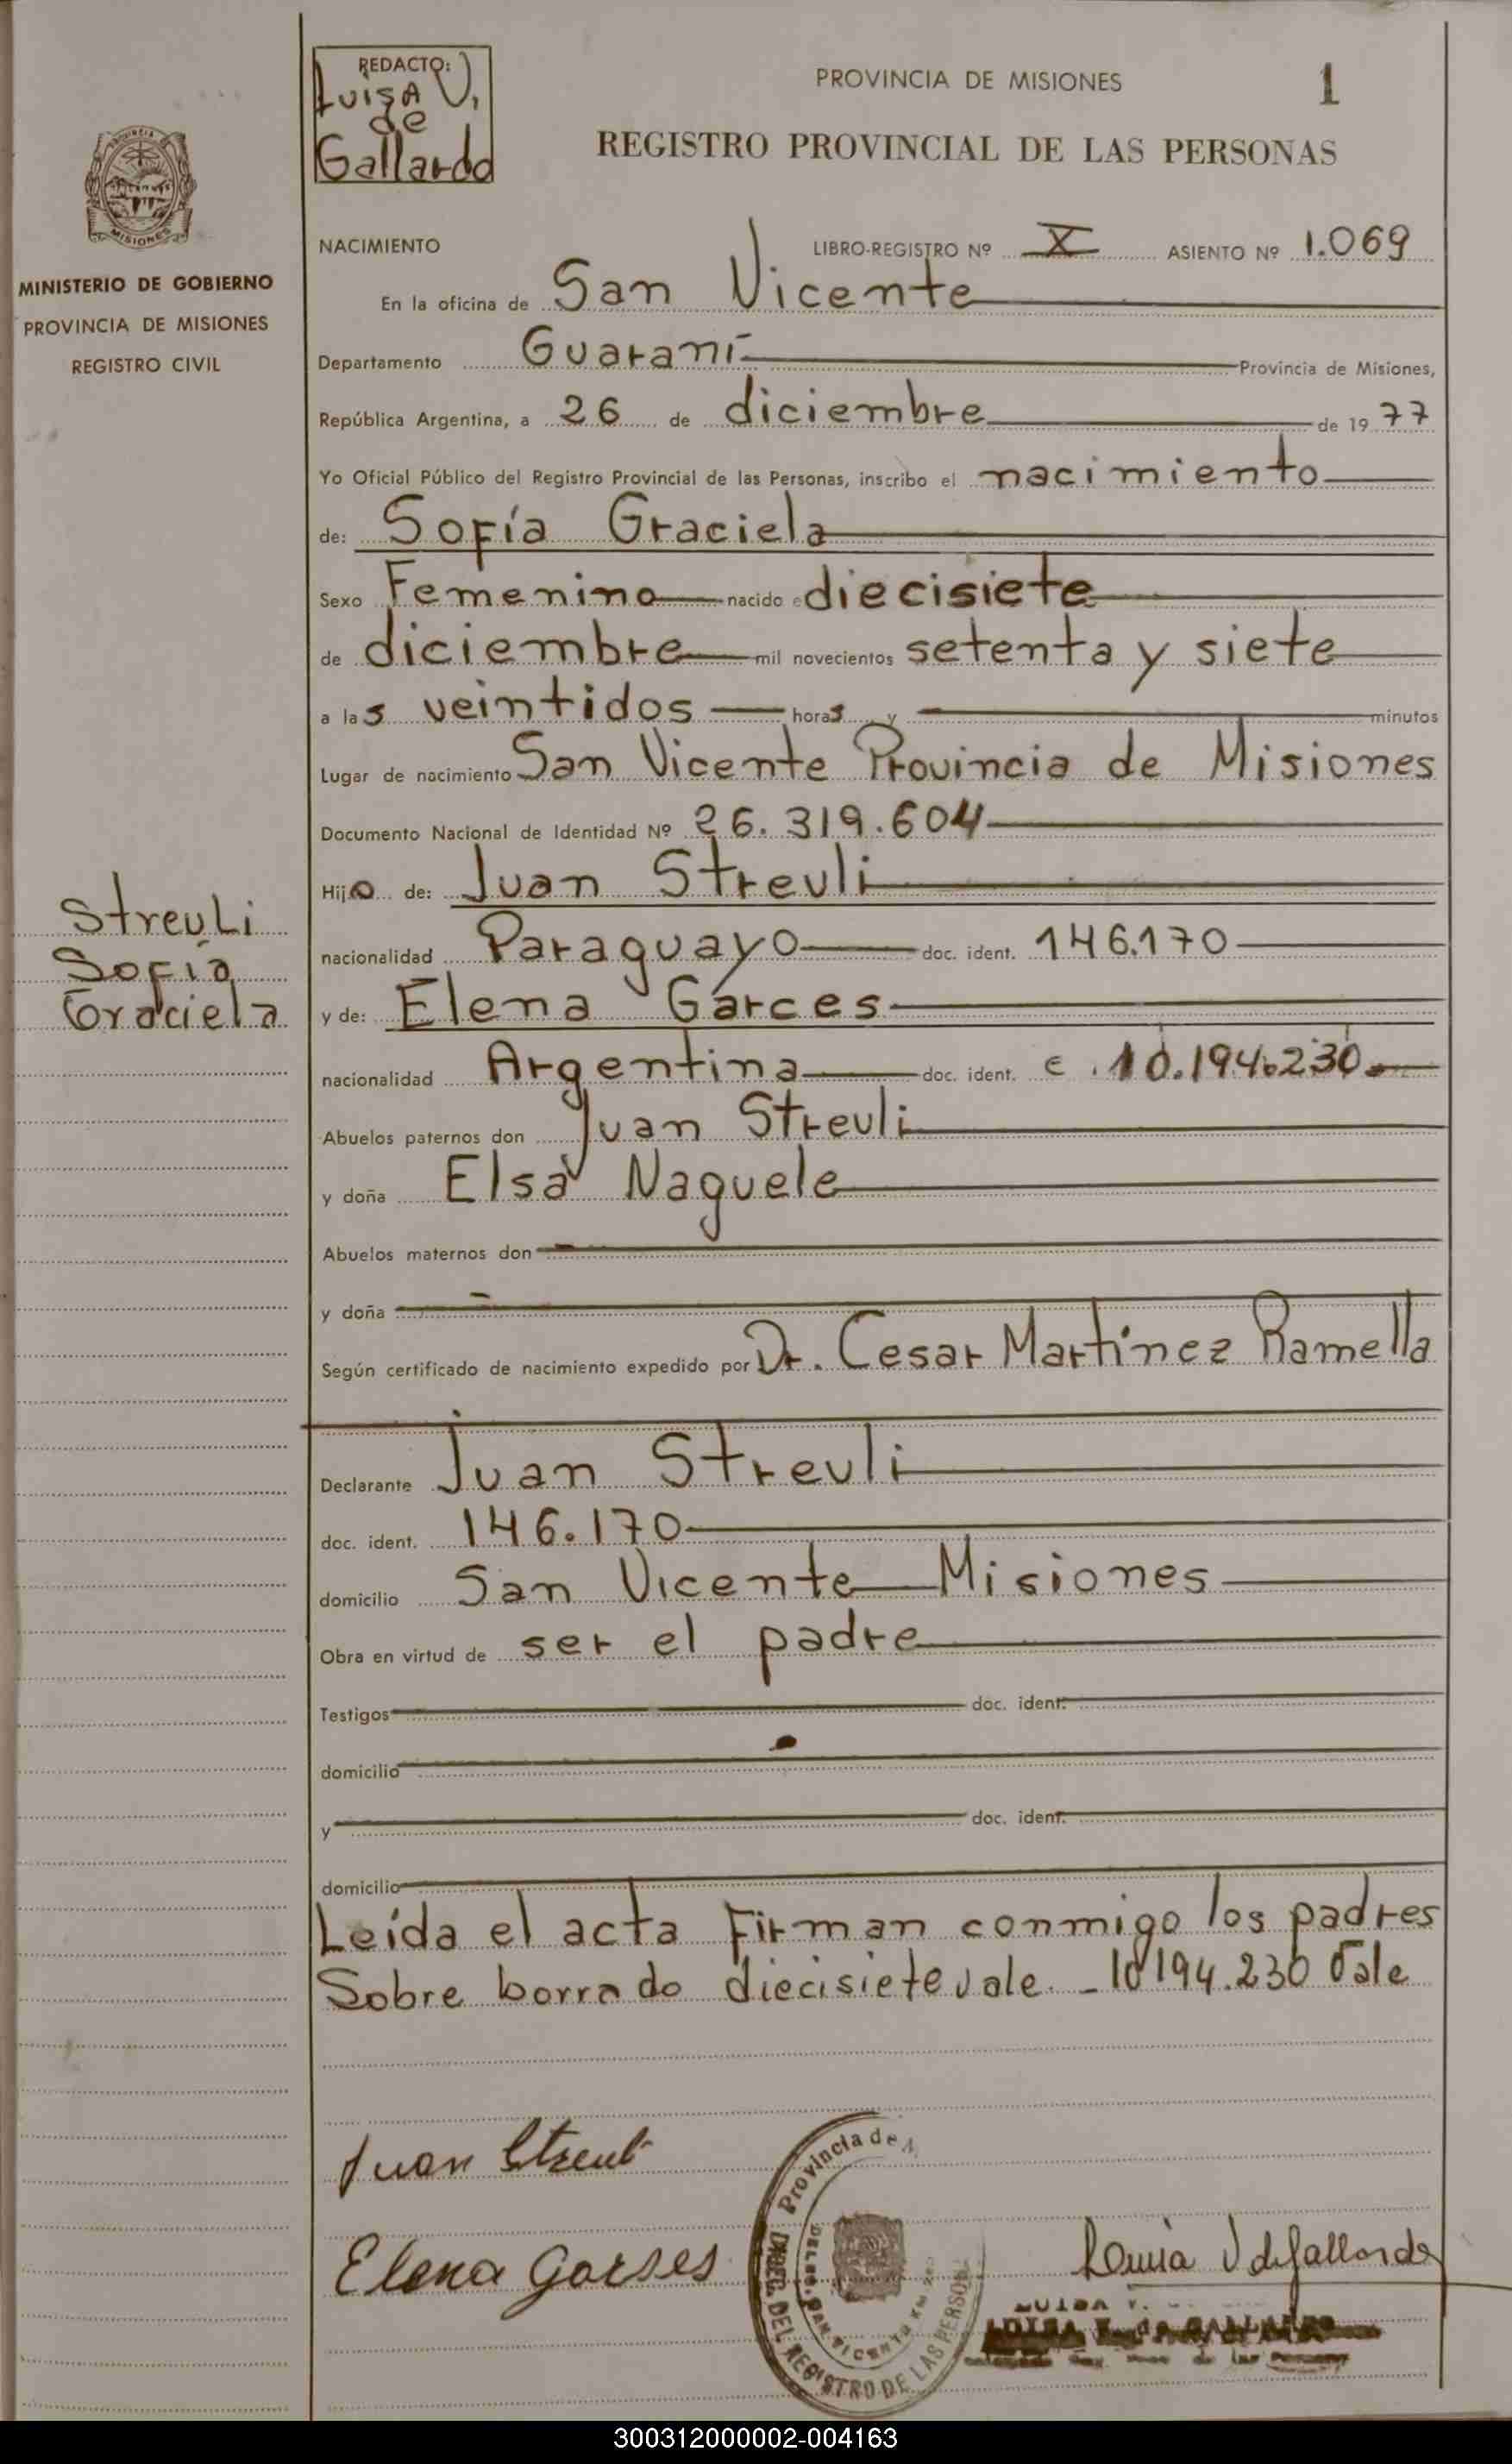 REDACTO:
Luisa V.
de
Gallardo
PROVINCIA DE MISIONES
1
REGISTRO PROVINCIAL DE LAS PERSONAS
MISIONES
MINISTERIO DE GOBIERNO
PROVINCIA DE MISIONES
REGISTRO CIVIL
NACIMIENTO LIBRO-REGISTRO Nº X ASIENTO Nº 1.069
En la oficina de San Vicente
Departamento Guaraní Provincia de Misiones,
República Argentina, a 26 de diciembre de 1977
Yo Oficial Público del Registro Provincial de las Personas, inscribo el nacimiento
de: Sofía Graciela
Sexo Femenino nacido e diecisiete
de diciembre mil novecientos setenta y siete
a las veintidos horas y minutos
Lugar de nacimiento San Vicente Provincia de Misiones
Documento Nacional de Identidad Nº 26.319.604
Hija de: Juan Streuli
nacionalidad Paraguayo doc. ident. 146.170
y de: Elena Garces
nacionalidad Argentina doc. ident. c. 10.194.230
Abuelos paternos don Juan Streuli
y doña Elsa Naguele
Abuelos maternos don
y doña
Según certificado de nacimiento expedido por Dr. Cesar Martínez Ramella
Declarante Juan Streuli
doc. ident. 146.170
domicilio San Vicente Misiones
Obra en virtud de ser el padre
Testigos doc. ident.
domicilio
y doc. ident.
domicilio
Leída el acta Firman conmigo los padres
Sobre borrado diecisiete vale. - 10194.230 Vale
Streuli
Sofia
Graciela
Juan Streuli
Elena Garses
Provincia de
DIREC. DEL REGISTRO DE LAS PERSO
SAN VICENTE
Luisa V de Gallardo
LUISA V.
LUISA V. de GALLARDO
de las Personas
300312000002-004163